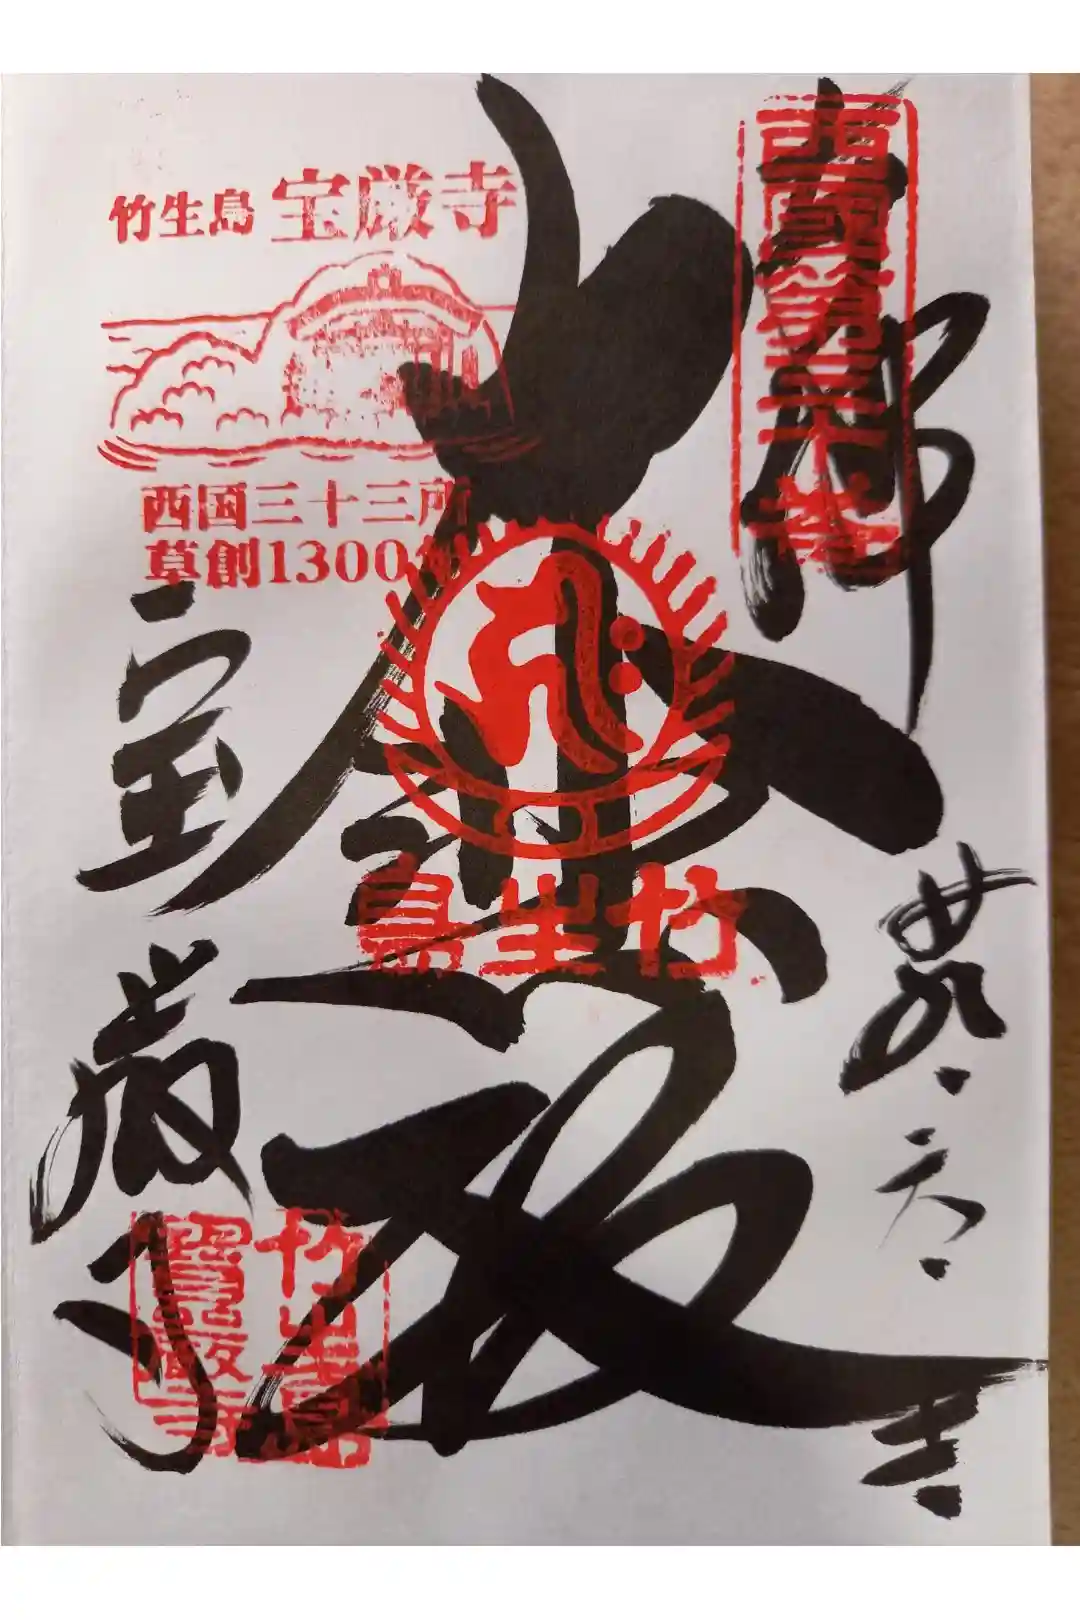 西國第三十番
奉拝
吉
大悲殿
竹生島
竹生島 宝厳寺
西国三十三所
草創1300年
宝厳寺
竹生島
寶嚴寺